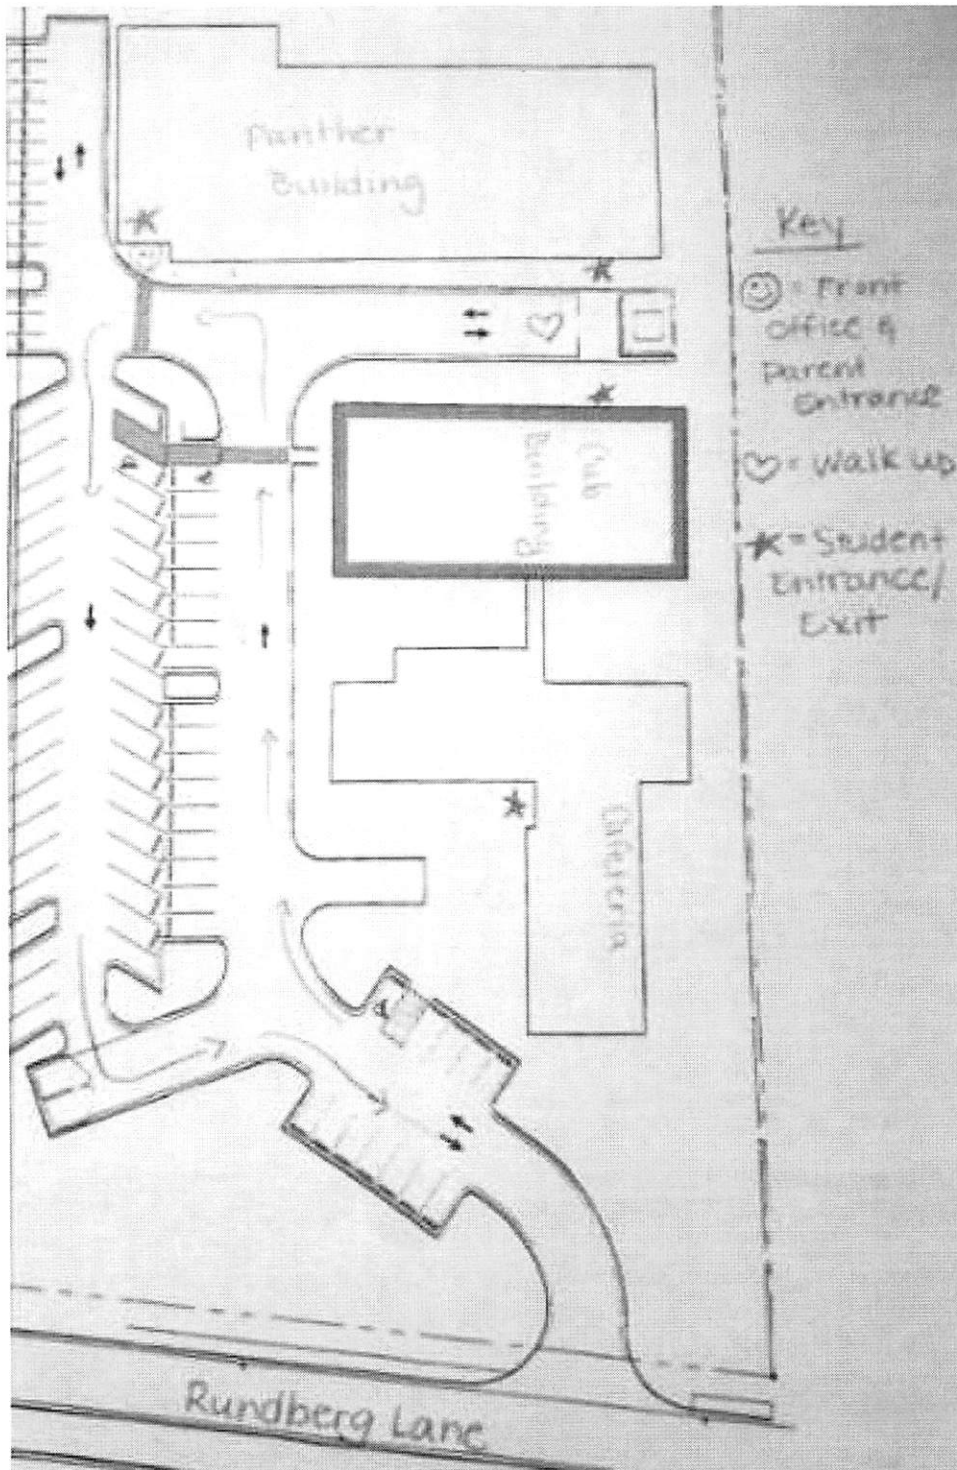 Panther
Building
Key
☺ = Front
office &
parent
Entrance
♡ = Walk up
★ = Student
Entrance/
Exit
Cub
Building
Cafeteria
Rundberg Lane